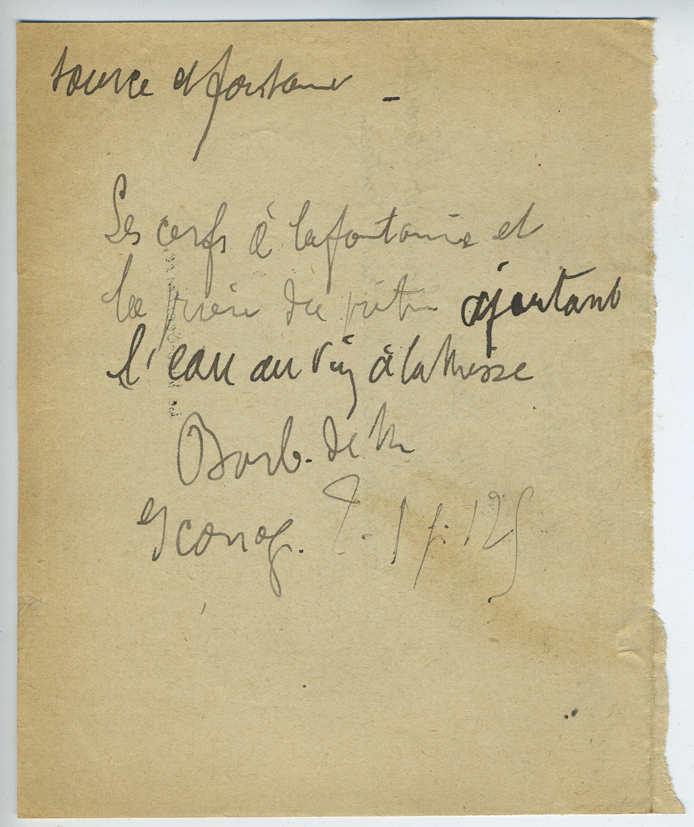 source et fontaine –
Les cerfs à la fontaine et
la prière du prêtre ajoutant
l'eau au vin à la Messe
Barb. de M
Iconog. T. 1 p. 125